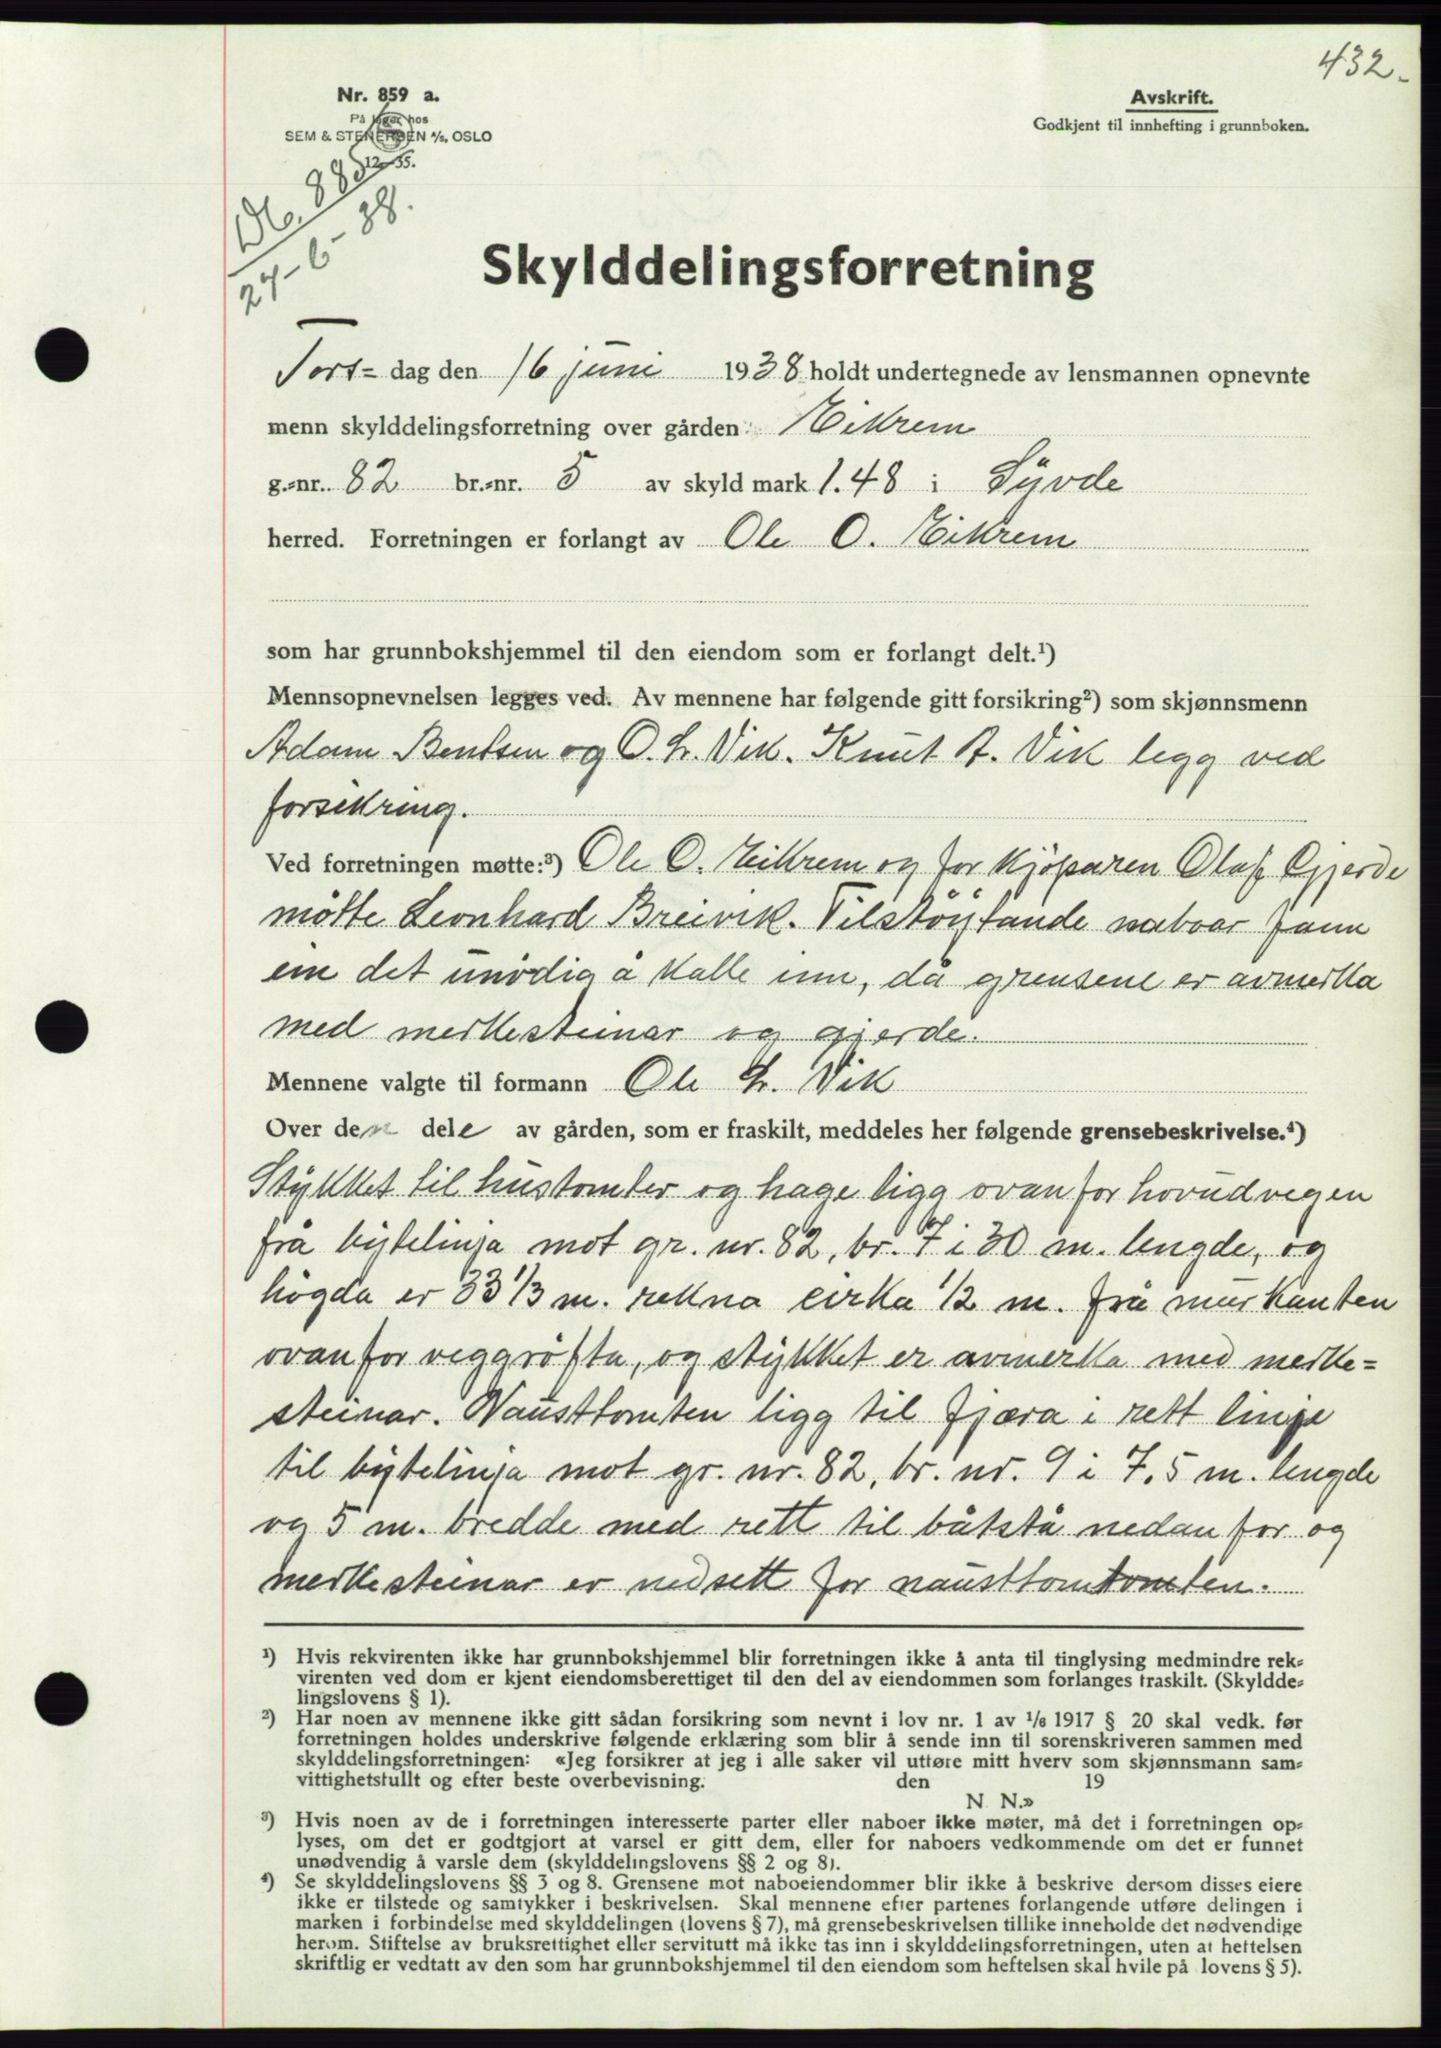 432.
Nr. 859 a.
På lager hos
SEM & STENERSEN A/S, OSLO
12-35.
Avskrift.
Godkjent til innhefting i grunnboken.
Db. 885
24-6-38.
Skylddelingsforretning
Tors= dag den 16 juni 1938 holdt undertegnede av lensmannen opnevnte
menn skylddelingsforretning over gården Eikrem
g.=nr. 82 br.=nr. 5 av skyld mark 1.48 i Syvde
herred. Forretningen er forlangt av Ole O. Eikrem
som har grunnbokshjemmel til den eiendom som er forlangt delt.¹)
Mennsopnevnelsen legges ved. Av mennene har følgende gitt forsikring²) som skjønnsmenn
Adam Bentsen og O. L. Vik. Knut A. Vik legg ved
forsikring.
Ved forretningen møtte:³) Ole O. Eikrem og for kjöparen Olaf Gjerde
mötte Leonhard Breivik. Tilstöytande naboar fann
ein det unödig å kalle inn, då grensene er avmerka
med merkesteinar og gjerde.
Mennene valgte til formann Ole L. Vik
Over den dele av gården, som er fraskilt, meddeles her følgende grensebeskrivelse.⁴)
Stykket til hustomter og hage ligg ovanfor hovudvegen
frå bytelinja mot gr. nr. 82, br. 7 i 30 m. lengde, og
högda er 33 1/3 m. rekna cirka 1/2 m. frå murkanten
ovanfor veggröfta, og stykket er avmerka med merke=
steinar. Nausttomten ligg til fjæra i rett linje
til bytelinja mot gr. nr. 82, br. nr. 9 i 7,5 m. lengde
og 5 m. bredde med rett til båtstå nedanfor og
merkesteinar er nedsett for nausttomtomten.
¹) Hvis rekvirenten ikke har grunnbokshjemmel blir forretningen ikke å anta til tinglysing medmindre rek=
virenten ved dom er kjent eiendomsberettiget til den del av eiendommen som forlanges fraskilt. (Skyldde=
lingslovens § 1).
²) Har noen av mennene ikke gitt sådan forsikring som nevnt i lov nr. 1 av 1/6 1917 § 20 skal vedk. før
forretningen holdes underskrive følgende erklæring som blir å sende inn til sorenskriveren sammen med
skylddelingsforretningen: «Jeg forsikrer at jeg i alle saker vil utføre mitt hverv som skjønnsmann sam=
vittighetsfullt og efter beste overbevisning. den 19
N N.»
³) Hvis noen av de i forretningen interesserte parter eller naboer ikke møter, må det i forretningen op=
lyses, om det er godtgjort at varsel er gitt dem, eller for naboers vedkommende om det er funnet
unødvendig å varsle dem (skylddelingslovens §§ 2 og 8).
⁴) Se skylddelingslovens §§ 3 og 8. Grensene mot naboeiendommer blir ikke å beskrive dersom disses eiere
ikke er tilstede og samtykker i beskrivelsen. Skal mennene efter partenes forlangende utføre delingen i
marken i forbindelse med skylddelingen (lovens § 7), må grensebeskrivelsen tillike inneholde det nødvendige
herom. Stiftelse av bruksrettighet eller servitutt må ikke tas inn i skylddelingsforretningen, uten at heftelsen
skriftlig er vedtatt av den som har grunnbokshjemmel til den eiendom som heftelsen skal hvile på lovens § 5).